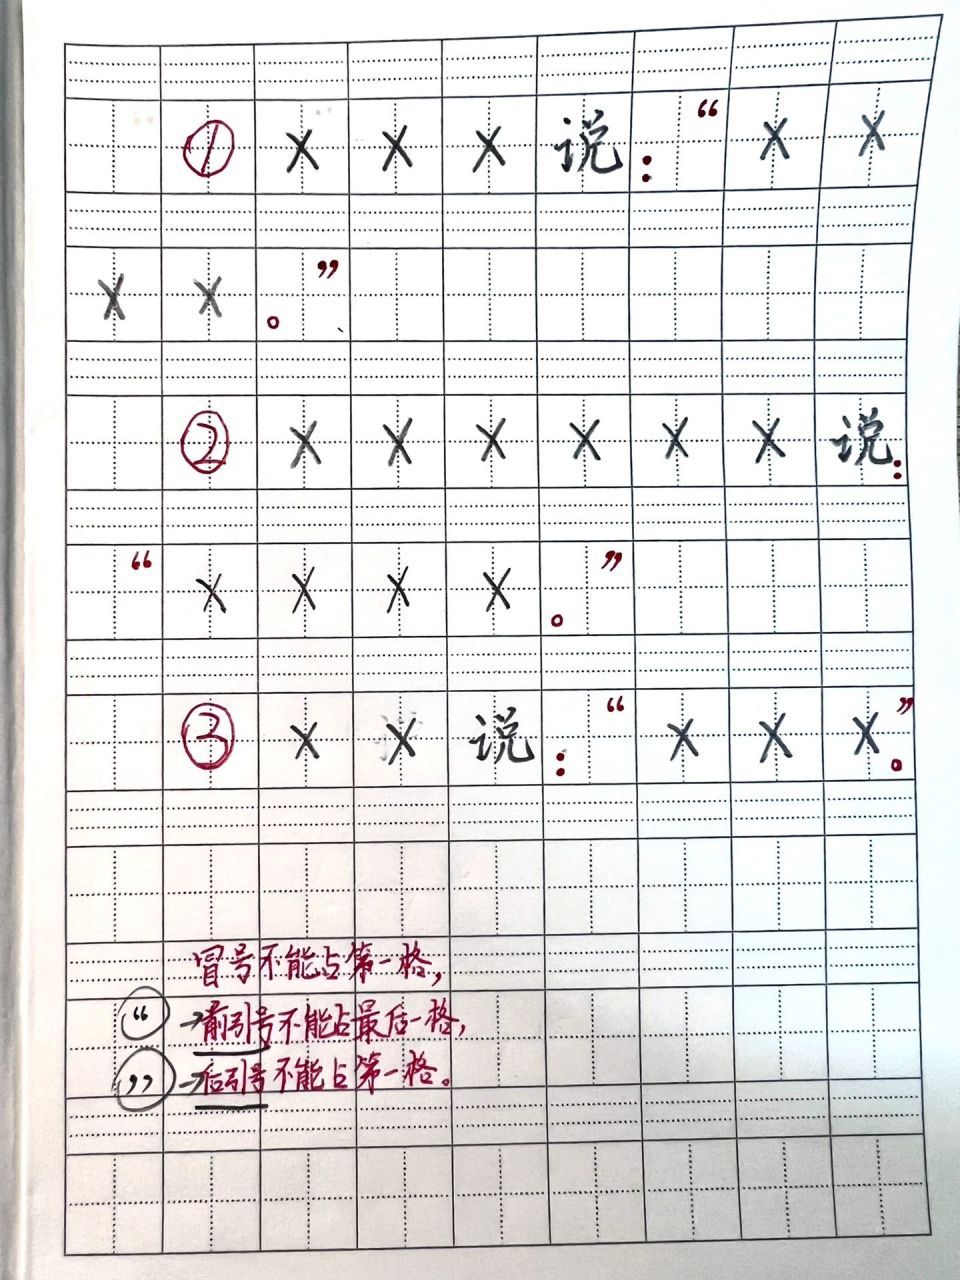 ① X X X 说：“X X
X X。”
② X X X X X X 说：
“X X X X。”
③ X X 说：“X X X。”
冒号不能占第一格，
“ → 前引号不能占最后一格，
” → 后引号不能占第一格。